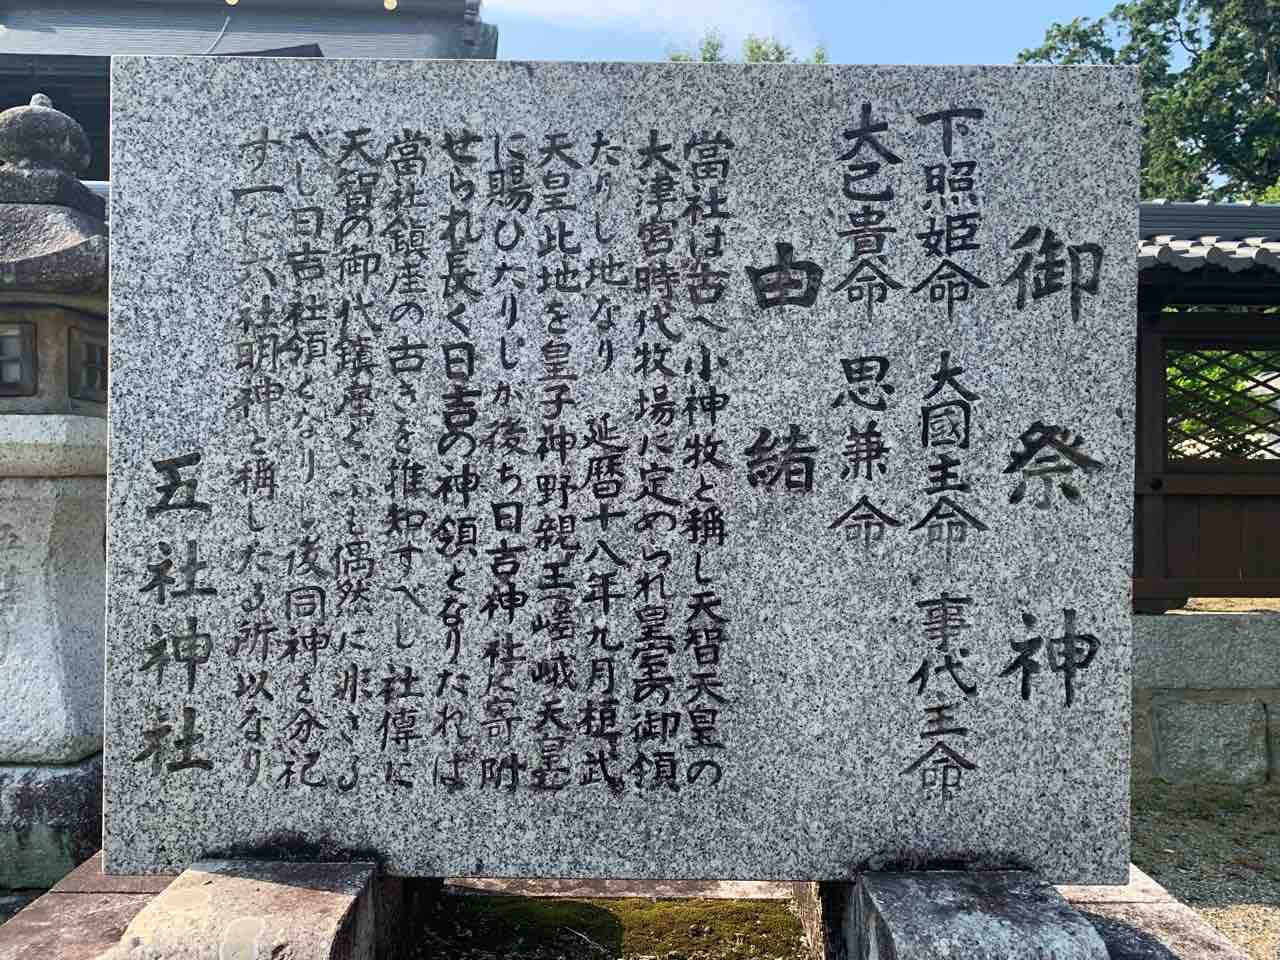 御祭神
下照姫命 大國主命 事代主命
大己貴命 思兼命
由緒
當社は古へ小神牧と稱し天智天皇の
大津宮時代牧場に定められ皇室の御領
たりし地なり 延暦十八年九月桓武
天皇此地を皇子神野親王嵯峨天皇
に賜ひたりしか後ち日吉神社に寄附
せられ長く日吉の神領となりたれば
當社鎮座の古さを推知すべし社傳に
天智の御代鎮座といふも偶然に非さる
べし日吉社領となりし後同神を分祀
す一に六社明神と稱したる所以なり
五社神社